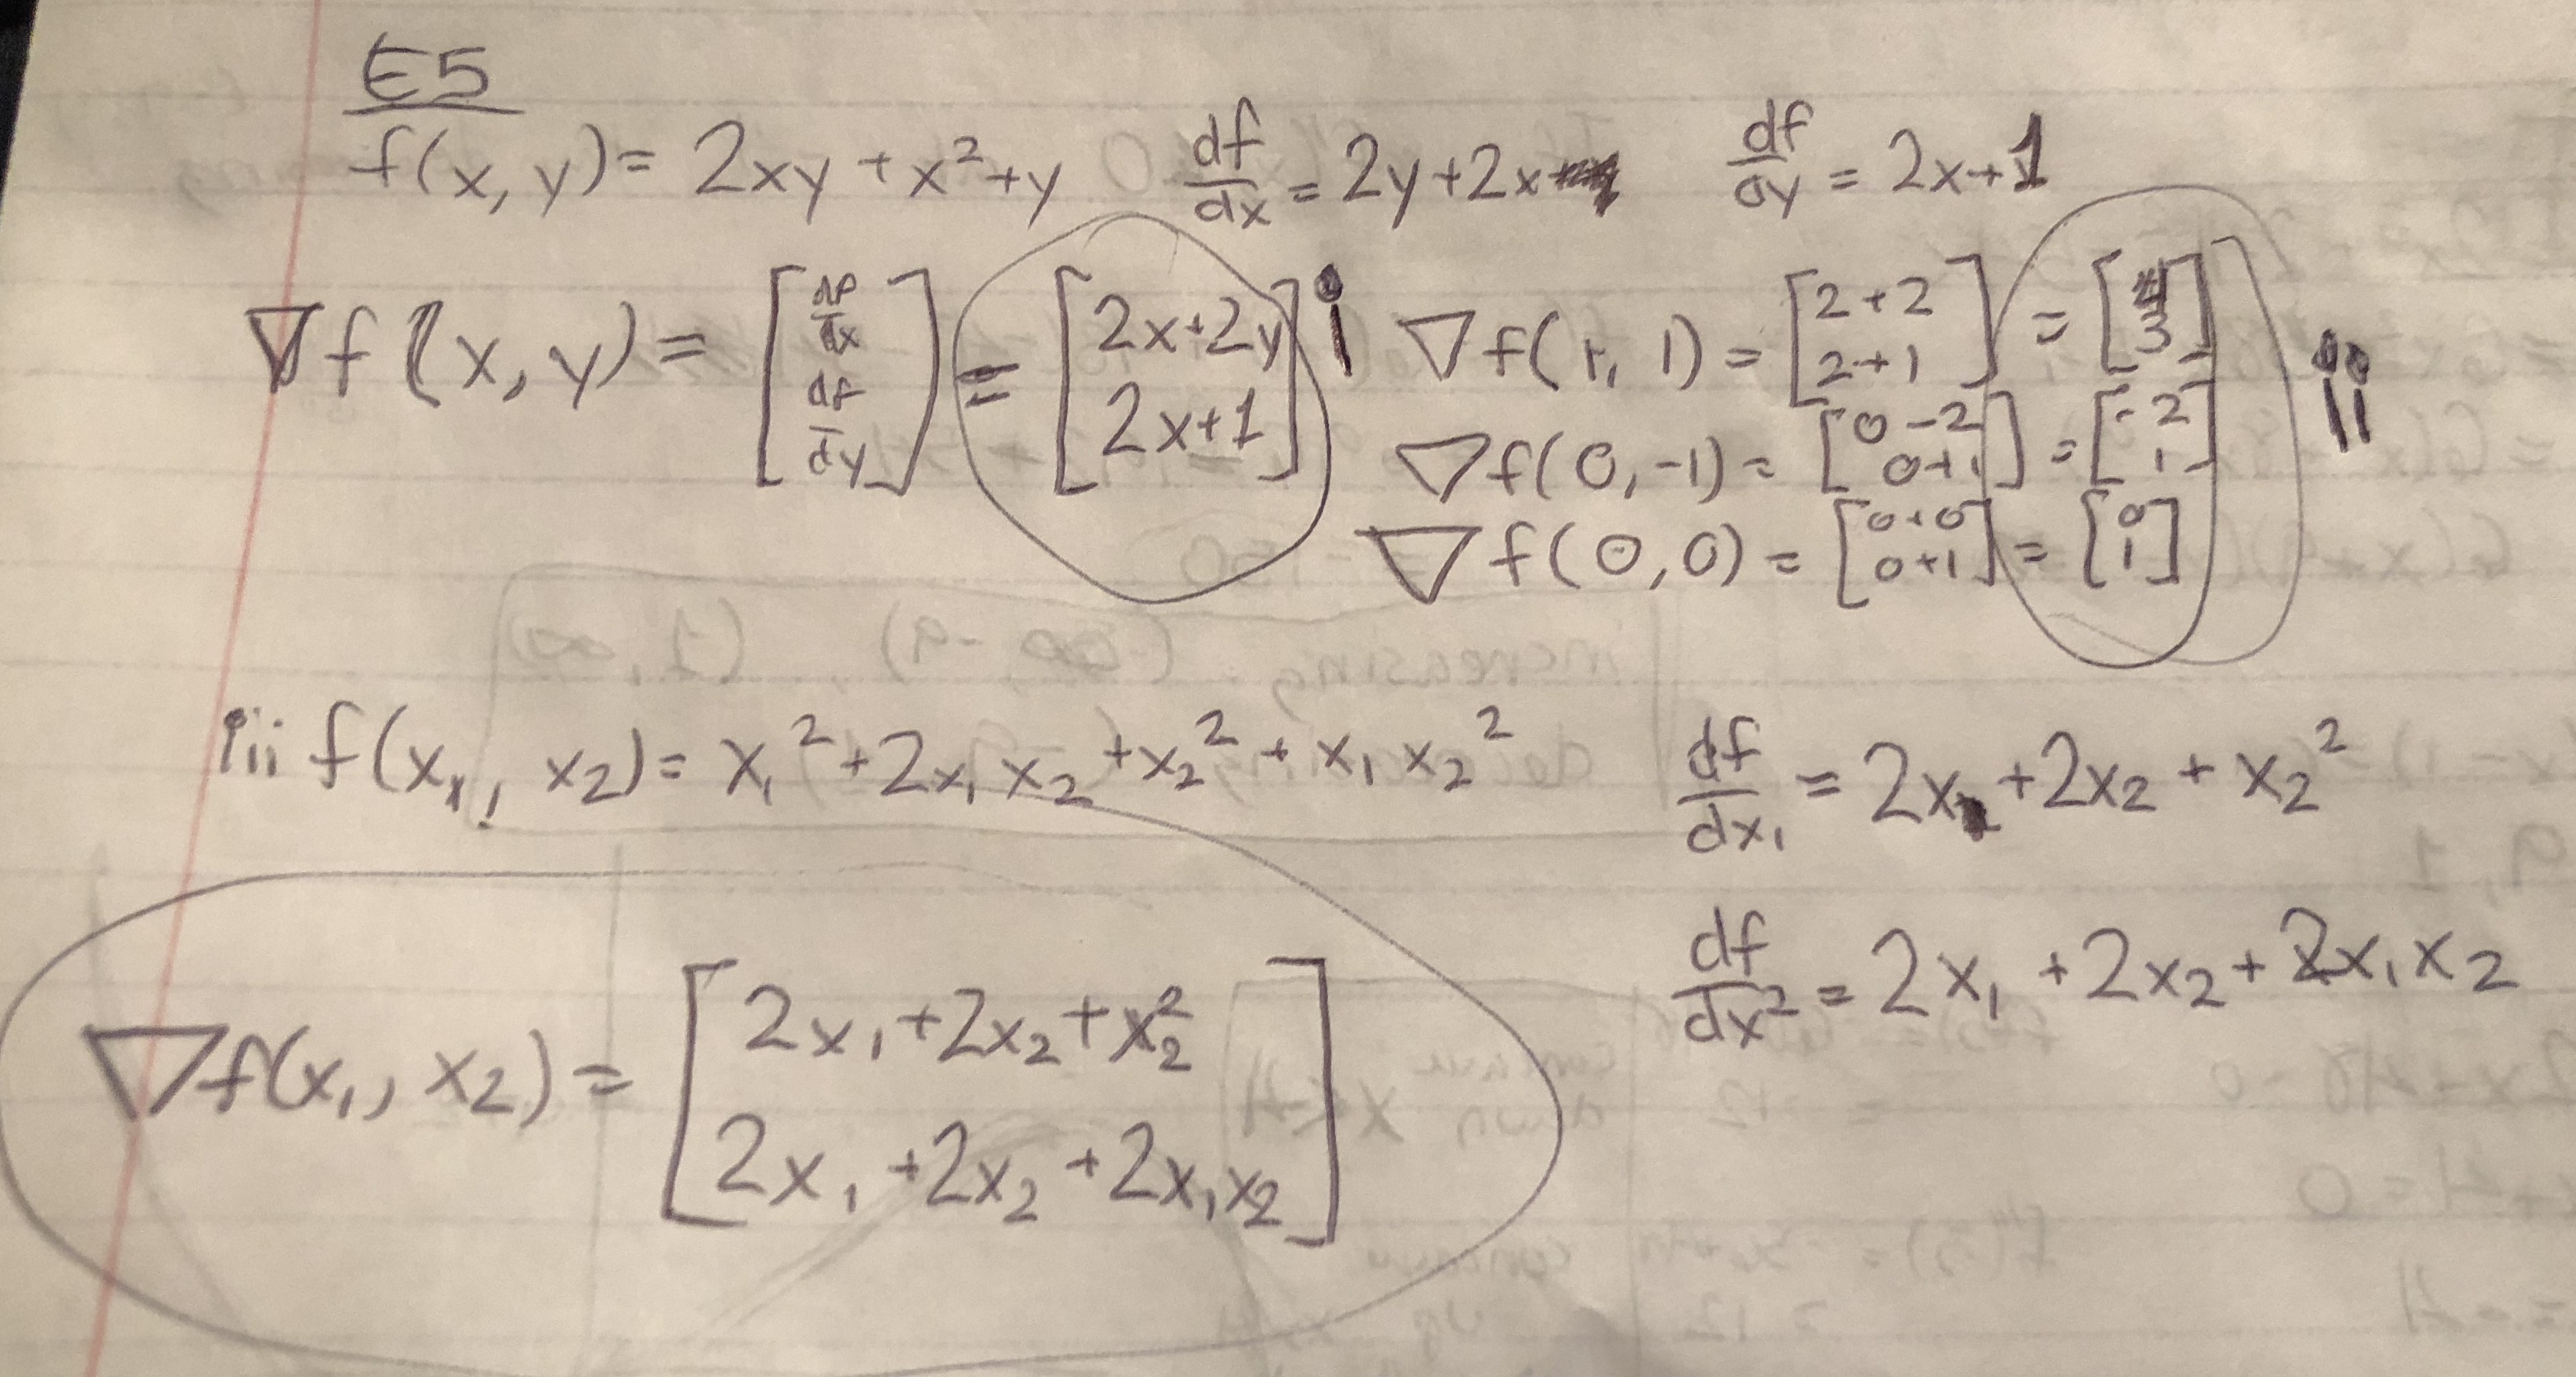 E5
f(x, y) = 2xy + x² + y   df/dx = 2y + 2x   df/dy = 2x + 1
∇f(x, y) = [df/dx df/dy] = [2x + 2y 2x + 1] i
∇f(1, 1) = [2 + 2 2 + 1] = [4 3] ii
∇f(0, -1) = [0 - 2 0 + 1] = [-2 1]
∇f(0, 0) = [0 + 0 0 + 1] = [0 1]
iii f(x₁, x₂) = x₁² + 2x₁x₂ + x₂² + x₁x₂²   df/dx₁ = 2x₁ + 2x₂ + x₂²
df/dx² = 2x₁ + 2x₂ + 2x₁x₂
∇f(x₁, x₂) = [2x₁ + 2x₂ + x₂² 2x₁ + 2x₂ + 2x₁x₂]